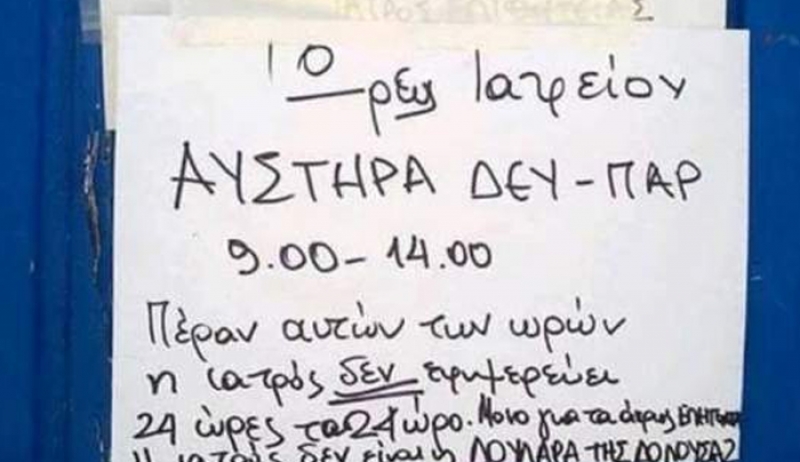 ΙΑΤΡΟΣ
Ώρες Ιατρείου
ΑΥΣΤΗΡΑ ΔΕΥ-ΠΑΡ
9.00-14.00
Πέραν αυτών των ωρών
η ιατρός δεν εφημερεύει
24 ώρες το 24ωρο. Μόνο για τα άκρως
Η ιατρός δεν είναι η ΛΟΥΛΑΡΑ ΤΗΣ